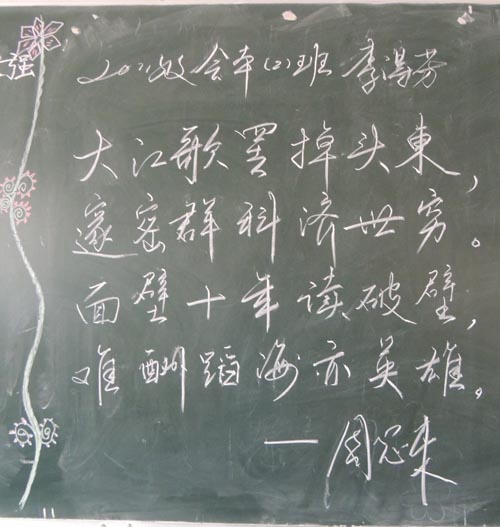 强
级会本(2)班 李芬
大江歌罢掉头東，
邃密群科济世穷。
面壁十年读破壁，
难酬蹈海亦英雄。
—周恩来